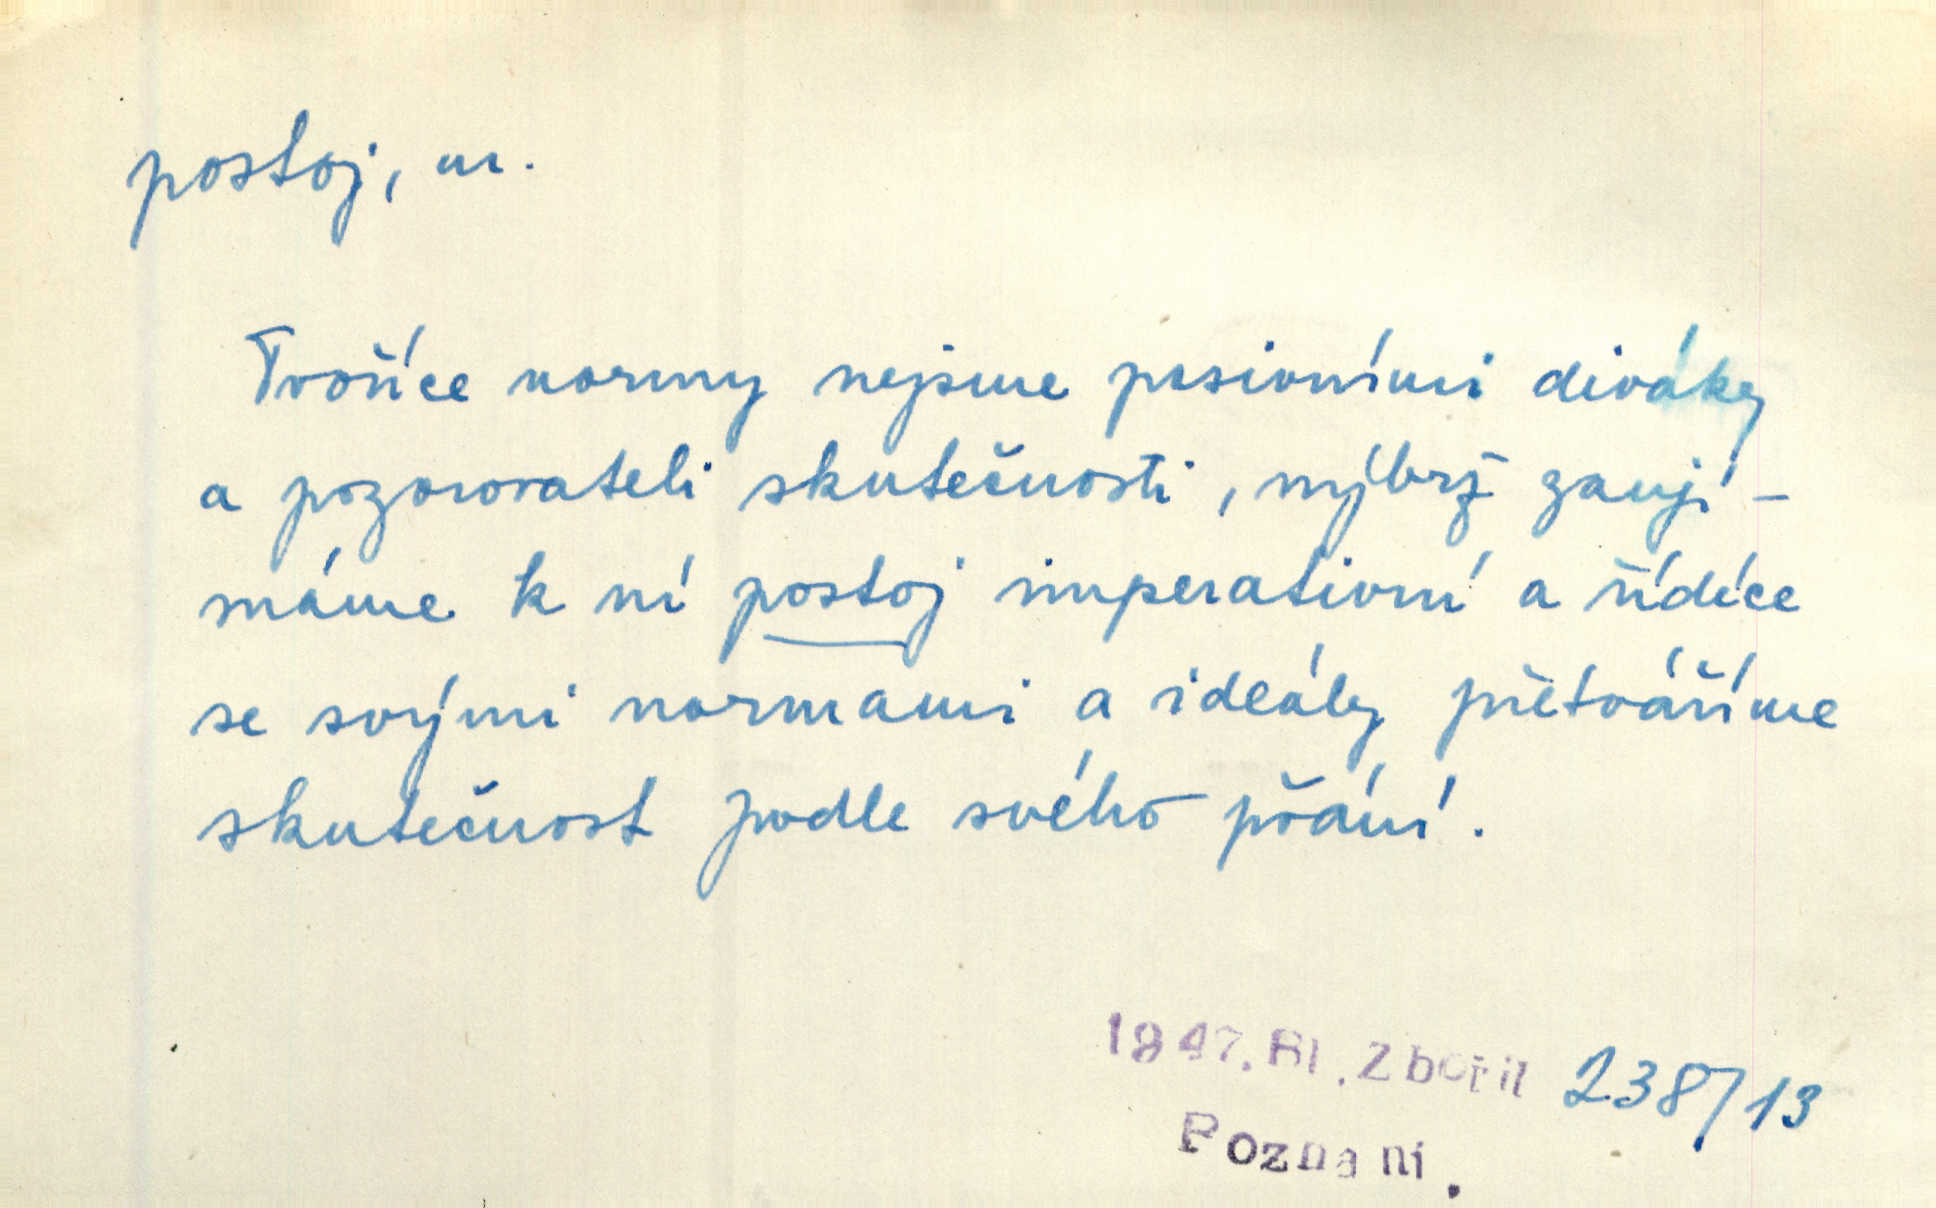 postoj, m.
Tvoříce normy nejsme pasivními diváky
a pozorovateli skutečnosti, nýbrž zaují-
máme k ní postoj imperativní a řídíce
se svými normami a ideály přetváříme
skutečnost podle svého přání.
1947. Bl. Zbořil 238/13
Poznání.